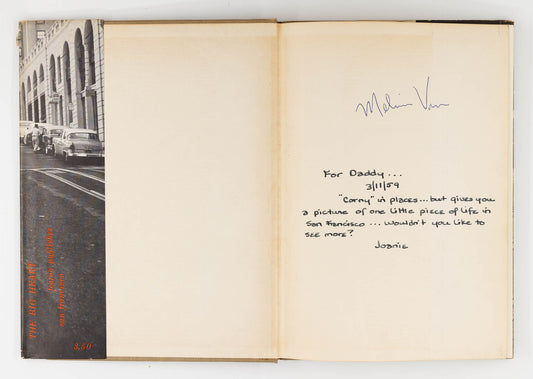 THE BIG HEART
san francisco
3.50
Melvin Van
For Daddy...
3/11/59
"Corny" in places...but gives you
a picture of one little piece of life in
San Francisco... wouldn't you like to
see more?
Joanie